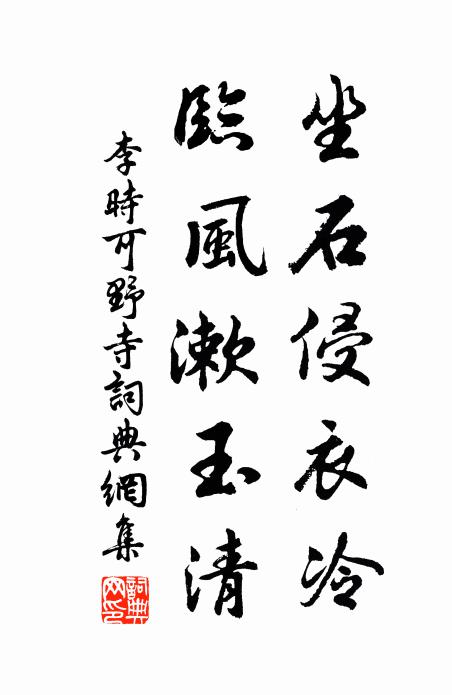 坐石侵衣冷
臨風漱玉清
李時可野寺詞典網集
詞典網印